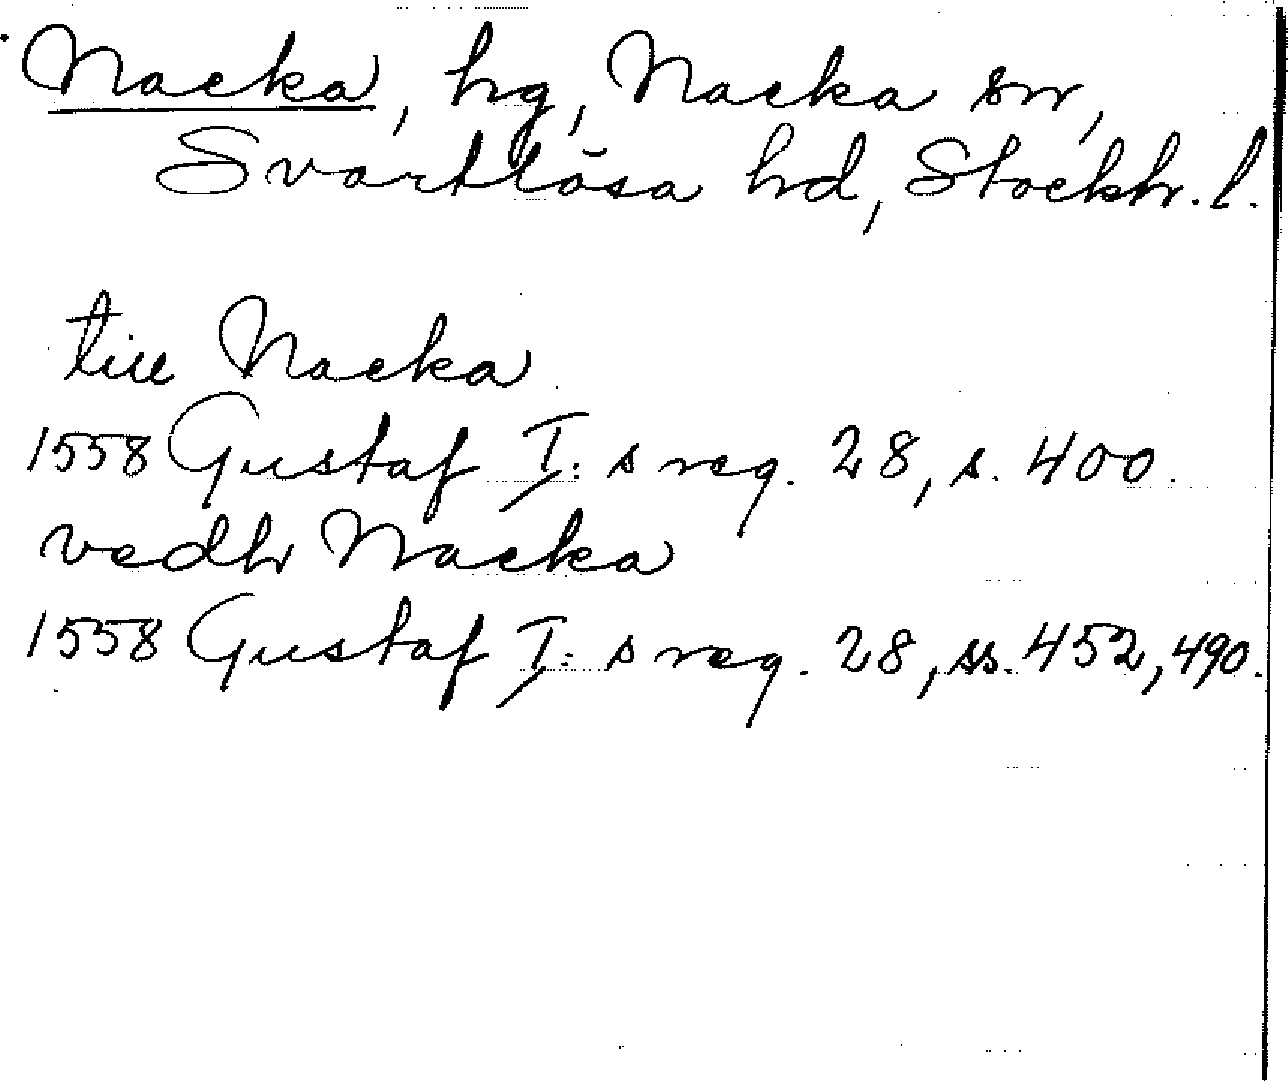 Nacka, hg, Nacka sn,
Svartlösa hd, Stockh. l.
till Nacka
1558 Gustaf I:s reg. 28, s. 400.
vedh Nacka
1558 Gustaf I:s reg. 28, ss. 452, 490.